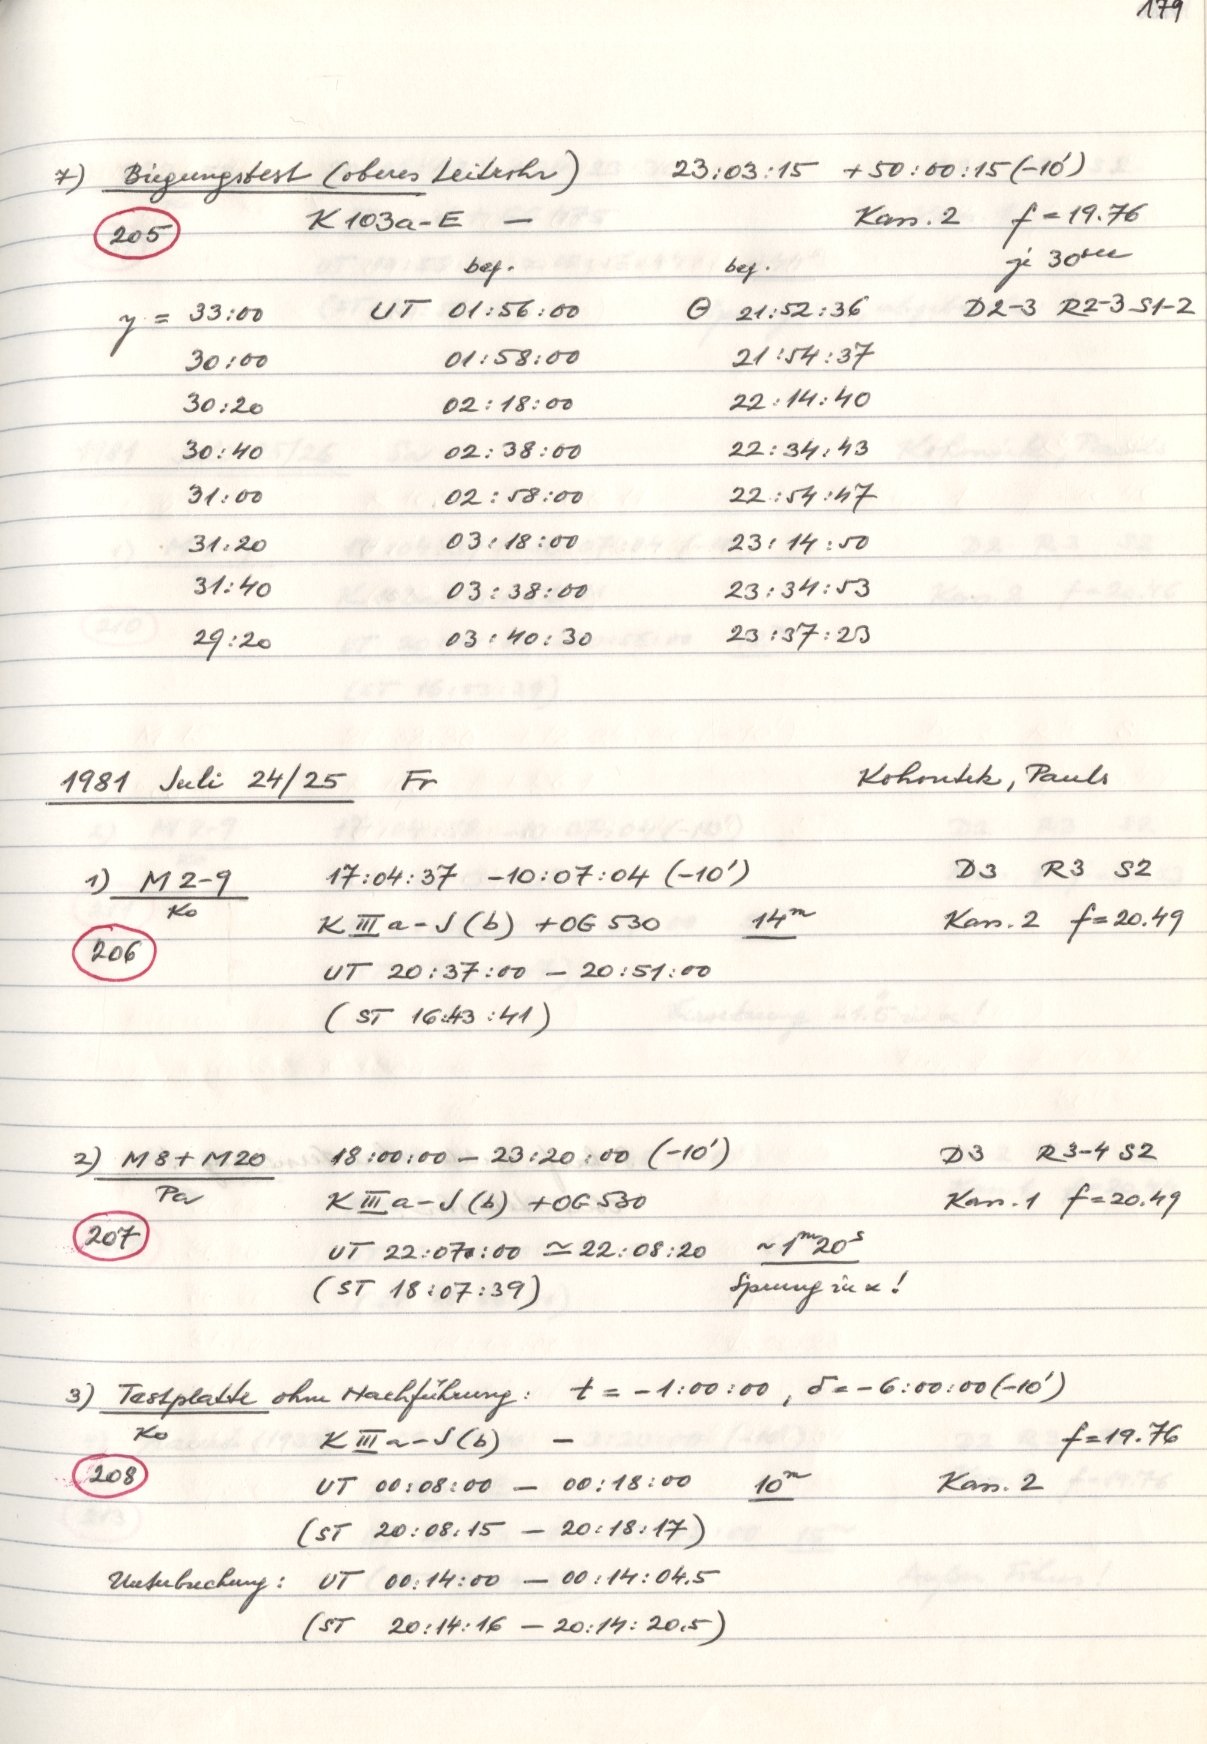 179
7) Biegungstest (oberes Leitrohr) 23:03:15 +50:00:15 (-10')
205 K 103a-E — Kass. 2 f = 19.76
beg. beg. je 30sec
y = 33:00 UT 01:56:00 Θ 21:52:36 D2-3 R2-3 S1-2
30:00 01:58:00 21:54:37
30:20 02:18:00 22:14:40
30:40 02:38:00 22:34:43
31:00 02:58:00 22:54:47
31:20 03:18:00 23:14:50
31:40 03:38:00 23:34:53
29:20 03:40:30 23:37:23
1981 Juli 24/25 Fr Kohoutek, Pauls
1) M 2-9 17:04:37 -10:07:04 (-10') D3 R3 S2
Ko K III a-J (b) + OG 530 14m Kass. 2 f = 20.49
206 UT 20:37:00 — 20:51:00
(ST 16:43:41)
2) M8 + M20 18:00:00 — 23:20:00 (-10') D3 R3-4 S2
Pa K III a-J (b) + OG 530 Kass. 1 f = 20.49
207 UT 22:07:00 ≃ 22:08:20 ~1m20s
(ST 18:07:39) Sprung in α!
3) Testplatte ohne Nachführung: t = -1:00:00, δ = -6:00:00 (-10')
Ko K III a-J (b) — f = 19.76
208 UT 00:08:00 — 00:18:00 10m Kass. 2
(ST 20:08:15 — 20:18:17)
Unterbrechung: UT 00:14:00 — 00:14:04.5
(ST 20:14:16 — 20:14:20.5)